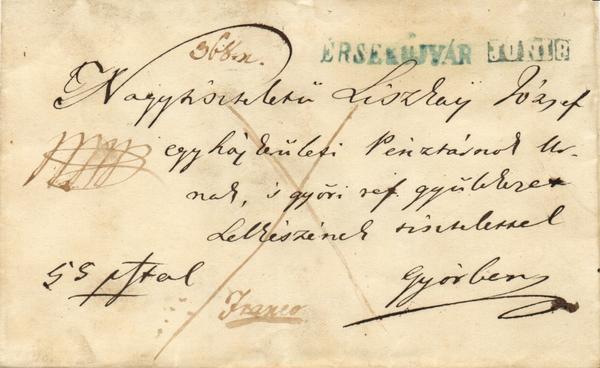 ÉRSEKÚJVÁR JUNI 8
Nagytiszteletű Liszkay József
egyházkerületi Pénztárnok Ur-
nak, 's győri ref. gyülekezet
Lelkészének tisztelettel
Győrben
55 pftal
Franco